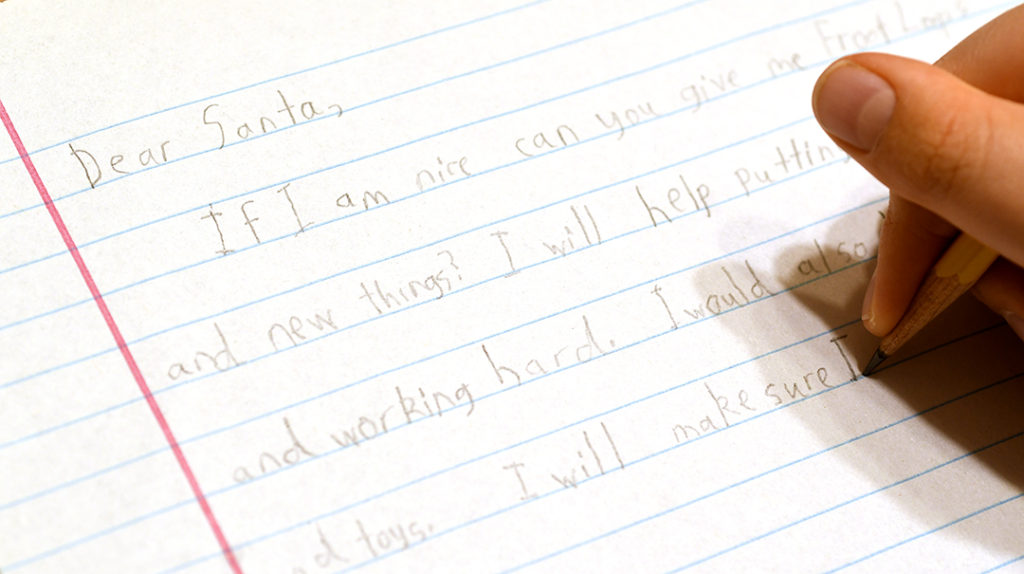 Dear Santa,
If I am nice can you give me Froot Loops
and new things? I will help putting
and working hard. I would also
toys. I will make sure I